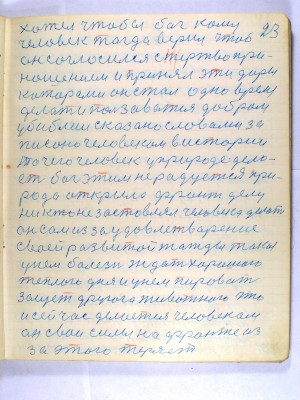 23
хотел чтобы бог кому
человек тагда верил чтоб
он согласился с жертвопри-
ношением и принял эти дары
катарами он стал одно время
делат и ползаватся добром
у библии сказано словами за
писоно человекам в истории
то чего человек у природе дела-
ет бог этим не радуется при-
рода аткрыла фронт делу
никто не заставлял человека делат
он сам из за удовлетварение
сваей развитой жажды такая
у нем балезн ждат харошего
теплого дня и у нем пироват
защет другога животного это
и сейчас делается человекам
он сваи силы на фронте из
за этого теряет